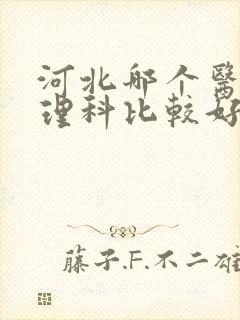 河北邮个醫
理科比較好
藤子.F.不二雄